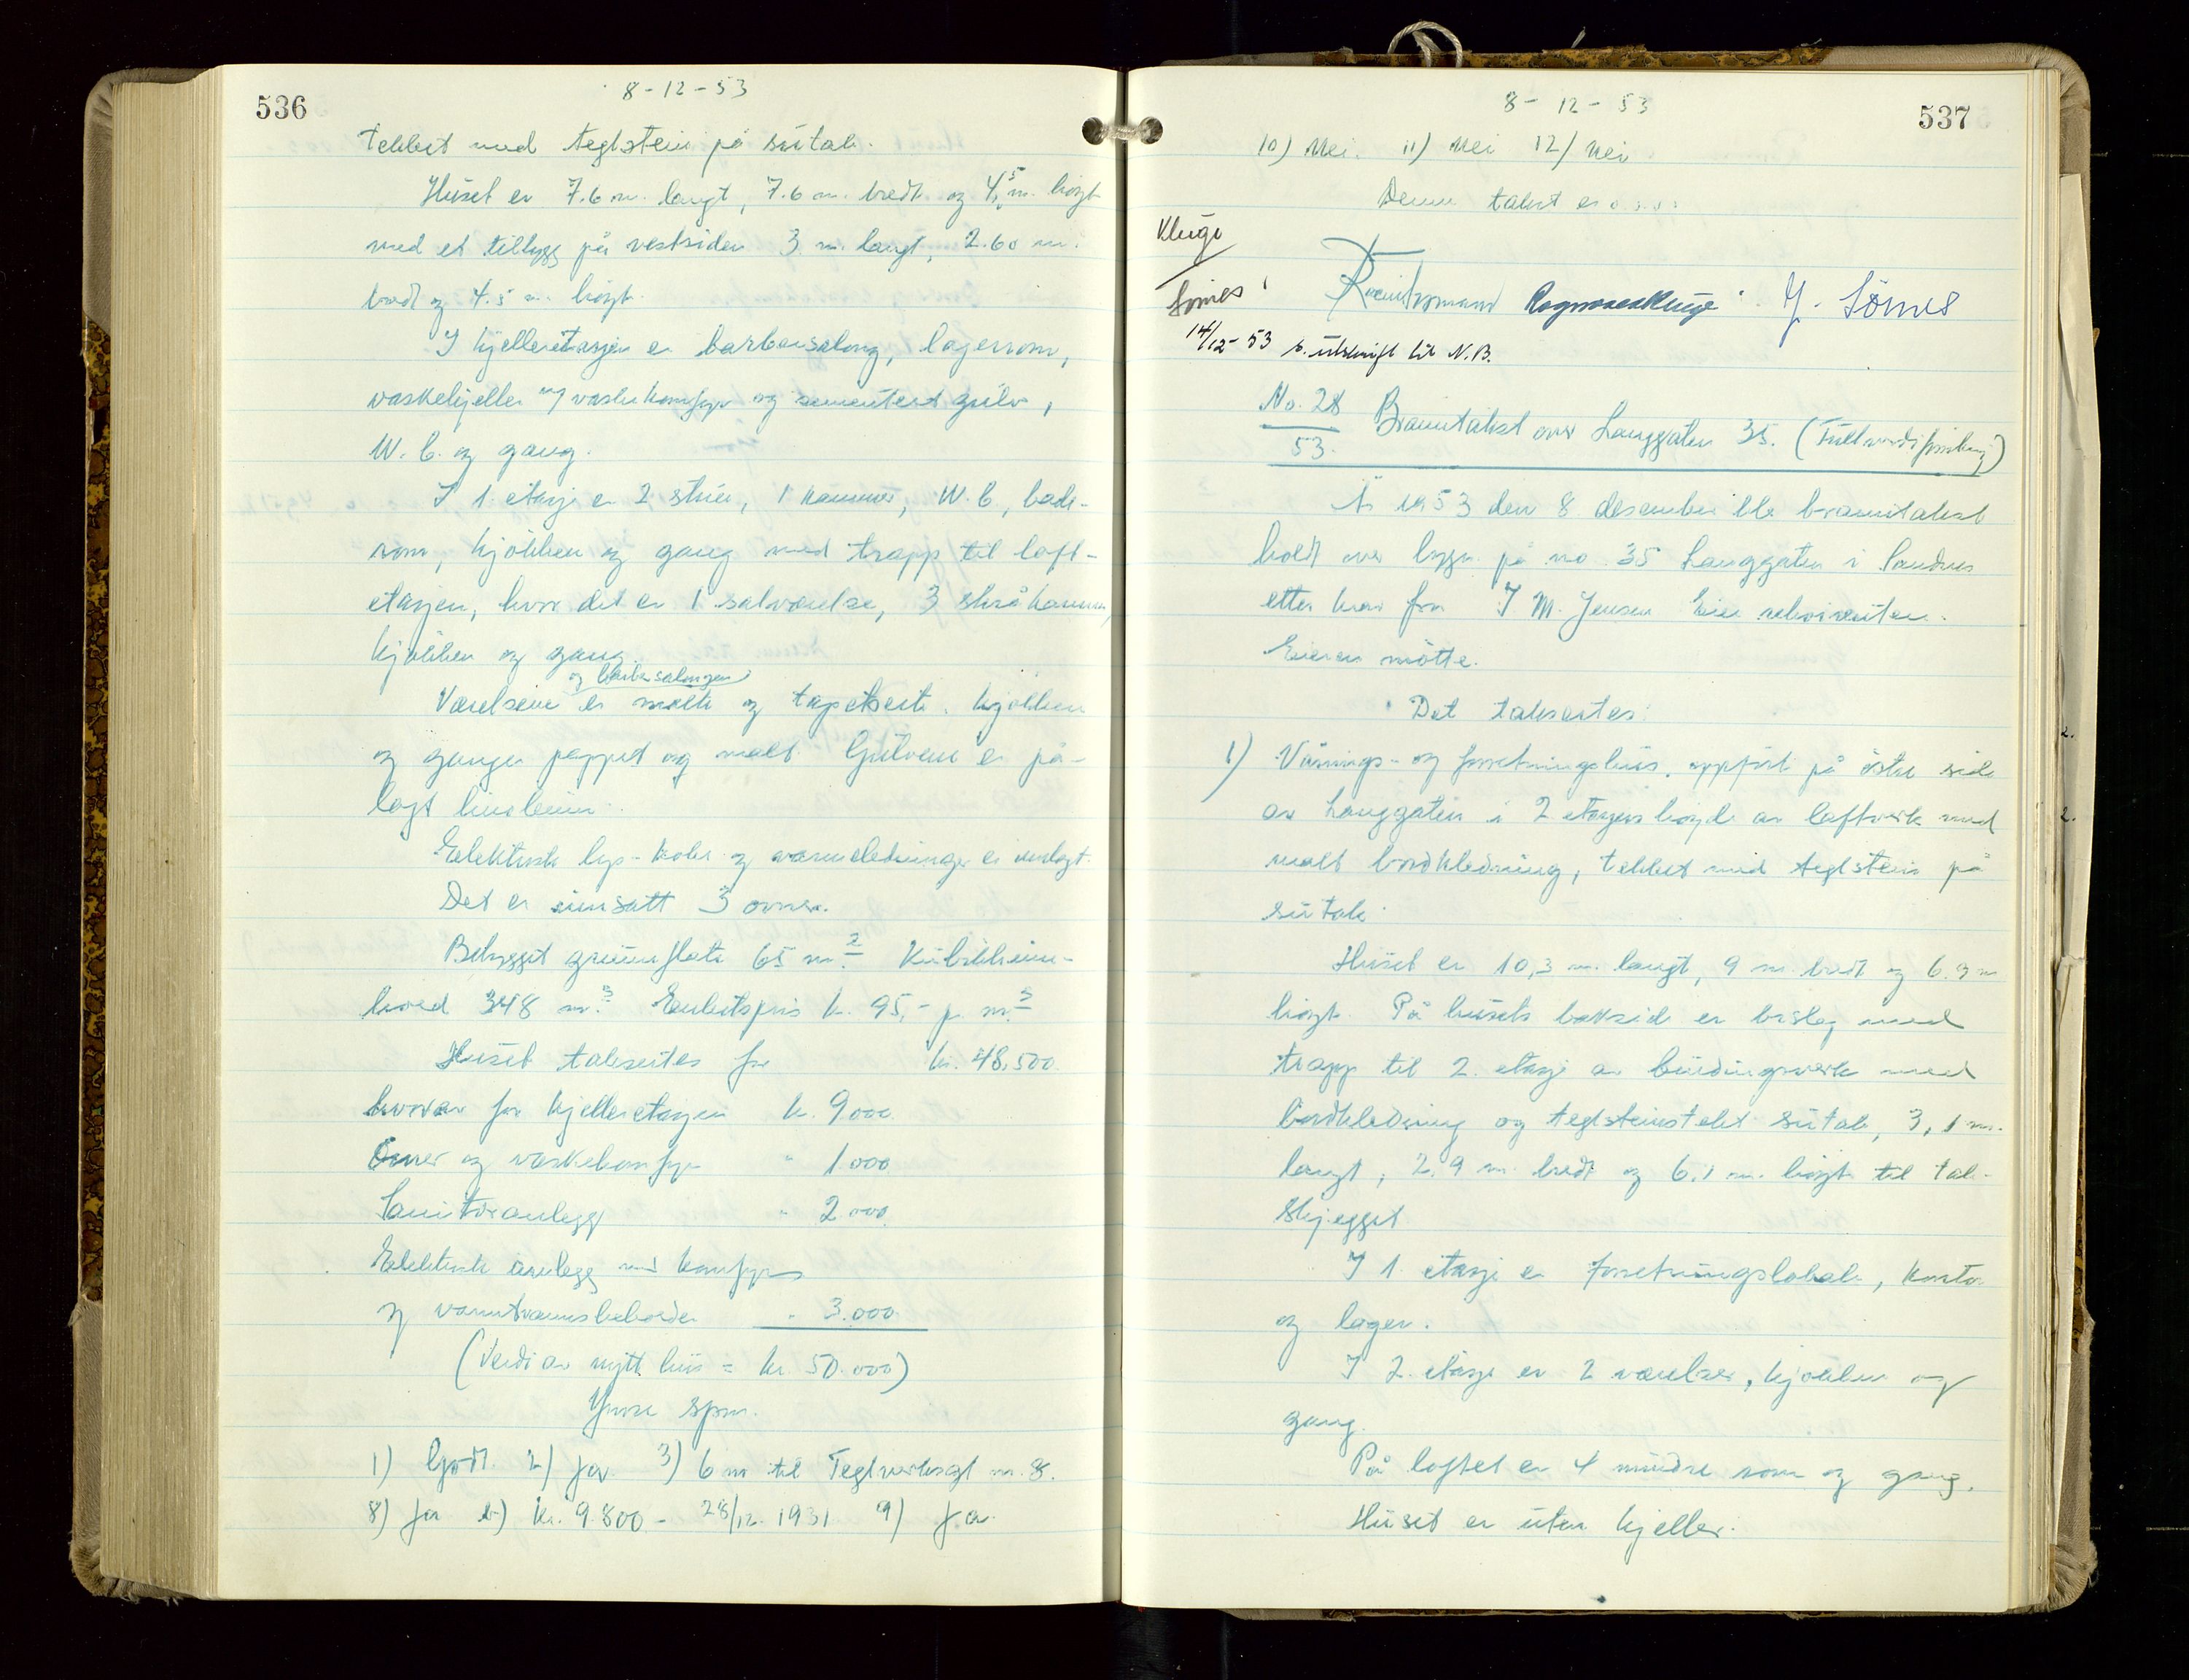 536
8-12-53
tekket med teglstein på sutak.
Huset er 7.6 m. langt, 7.6 m. bredt og 4,5 m. høyt
med et tilbygg på vestsiden 3 m. langt, 2.60 m.
bredt og 4.5 m. høyt.
I kjelleretasjen er barbersalong, lagerrom,
vaskekjeller m/ vaskekomfyr og sementert gulv,
W.C. og gang.
I 1. etasje er 2 stuer, 1 kammer, W.C, bade-
rom, kjøkken og gang med trapp til loft-
etasjen, hvor det er 1 salværelse, 3 skråkammer,
kjøkken og gang.
og barbersalongen
Værelsene er malte og tapetserte. Kjøkken
og ganger pappet og malt. Gulvene er på-
lagt linoleum.
Elektrisk lys- koke- og varmeledninger er innlagt.
Det er innsatt 3 ovner.
Bebygget grunnflate 65 m.2 Kubikkinn-
hold 348 m.3 Enhetspris kr. 95,- p. m.3
Huset takseres for kr. 48.500.
hvorav for kjelleretasjen kr. 9000.
Ovner og vaskekomfyr " 1.000
Sanitæranlegg " 2.000.
Elektrisk anlegg med komfyr
og varmtvannsbeholder " 3.000.
(Verdi av nytt hus = kr. 50.000)
Ymse spm.
1) Godt. 2) Ja 3) 6 m til Teglverksgt nr. 8.
8) Ja b) kr. 9.800 - 28/12. 1931 9) Ja.
537
8-12-53
10) Nei. 11) Nei 12) Nei
Denne takst er o.s.v.
Kluge
Sømes
Ragnvald Kluge J. Sømes
14/12-53 s. utskrift til N.B.
No. 28
53. Branntakst over Langgaten 35. (Fullverdiforsikring)
År 1953 den 8 desember ble branntakst
holdt over bygn. på no. 35 Langgaten i Sandnes
etter krav fra J M. Jensen Eier rekvirenten.
Eieren møtte.
Det takseres:
1) Vånings- og forretningshus, oppført på østre side
av Langgaten i 2 etasjers høyde av laftverk med
malt bordkledning, tekket med teglstein på
sutak.
Huset er 10,3 m. langt, 9 m. bredt og 6.3 m
høyt. På husets bakside er bislag med
trapp til 2. etasje av bindingsverk med
bordkledning og teglsteinstekt sutak, 3,1 m.
langt, 2.9 m. bredt og 6.1 m. høyt til tak-
skjegget
I 1. etasje er forretningslokale, kontor
og lager.
I 2. etasje er 2 værelser, kjøkken og
gang.
På loftet er 4 mindre rom og gang.
Huset er uten kjeller.